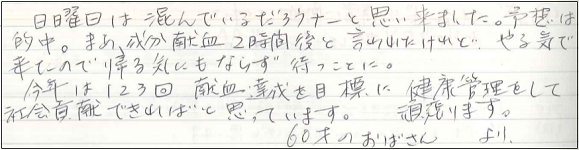 日曜日は混んでいるだろうナーと思い来ました。予想は
的中。まあ、成分献血2時間後と言われたけれど、やる気で
来たので帰る気にもならず待つことに。
今年は123回 献血達成を目標に 健康管理をして
社会貢献できればと思っています。 頑張ります。
60才のおばさん より